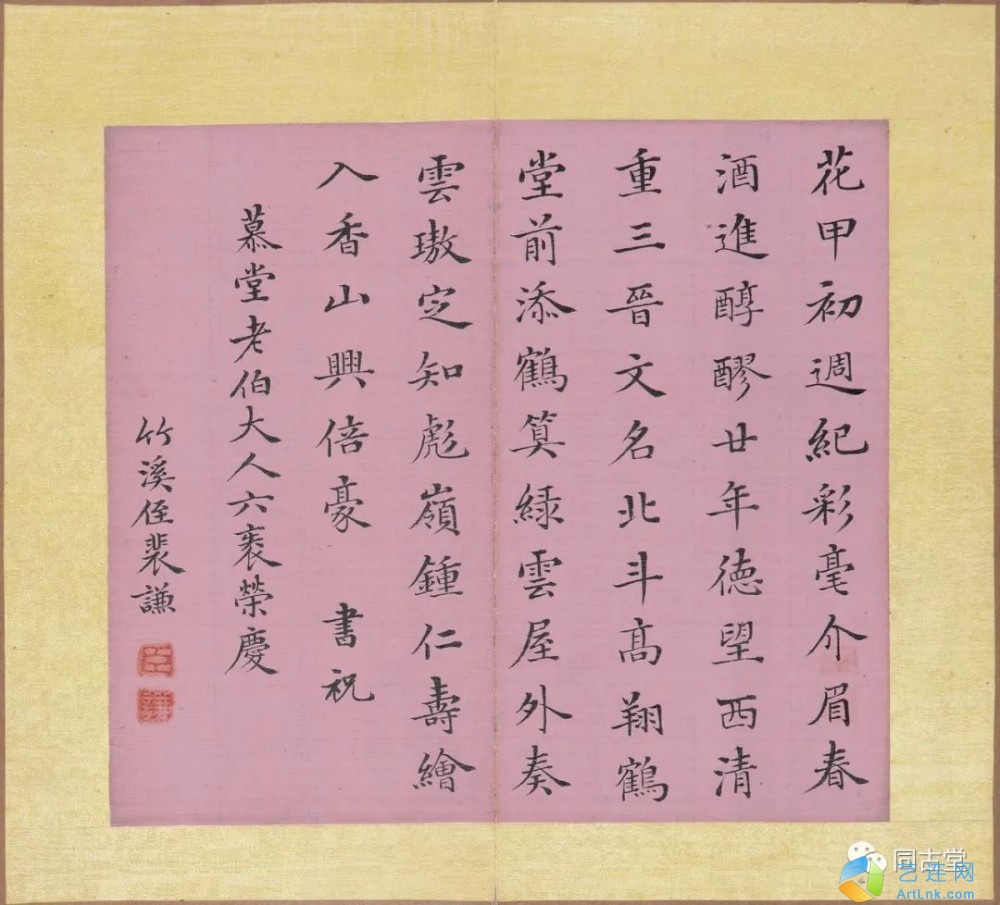 花甲初週紀彩毫介眉春
酒進醇醪廿年德望西清
重三晉文名北斗高翔鶴
堂前添鶴筭綠雲屋外奏
雲璈定知彪嶺鍾仁壽繪
入香山興倍豪 書祝
慕堂老伯大人六袠榮慶
竹溪侄裴謙
臣
謙
同古堂
艺连网
ArtLnk.com